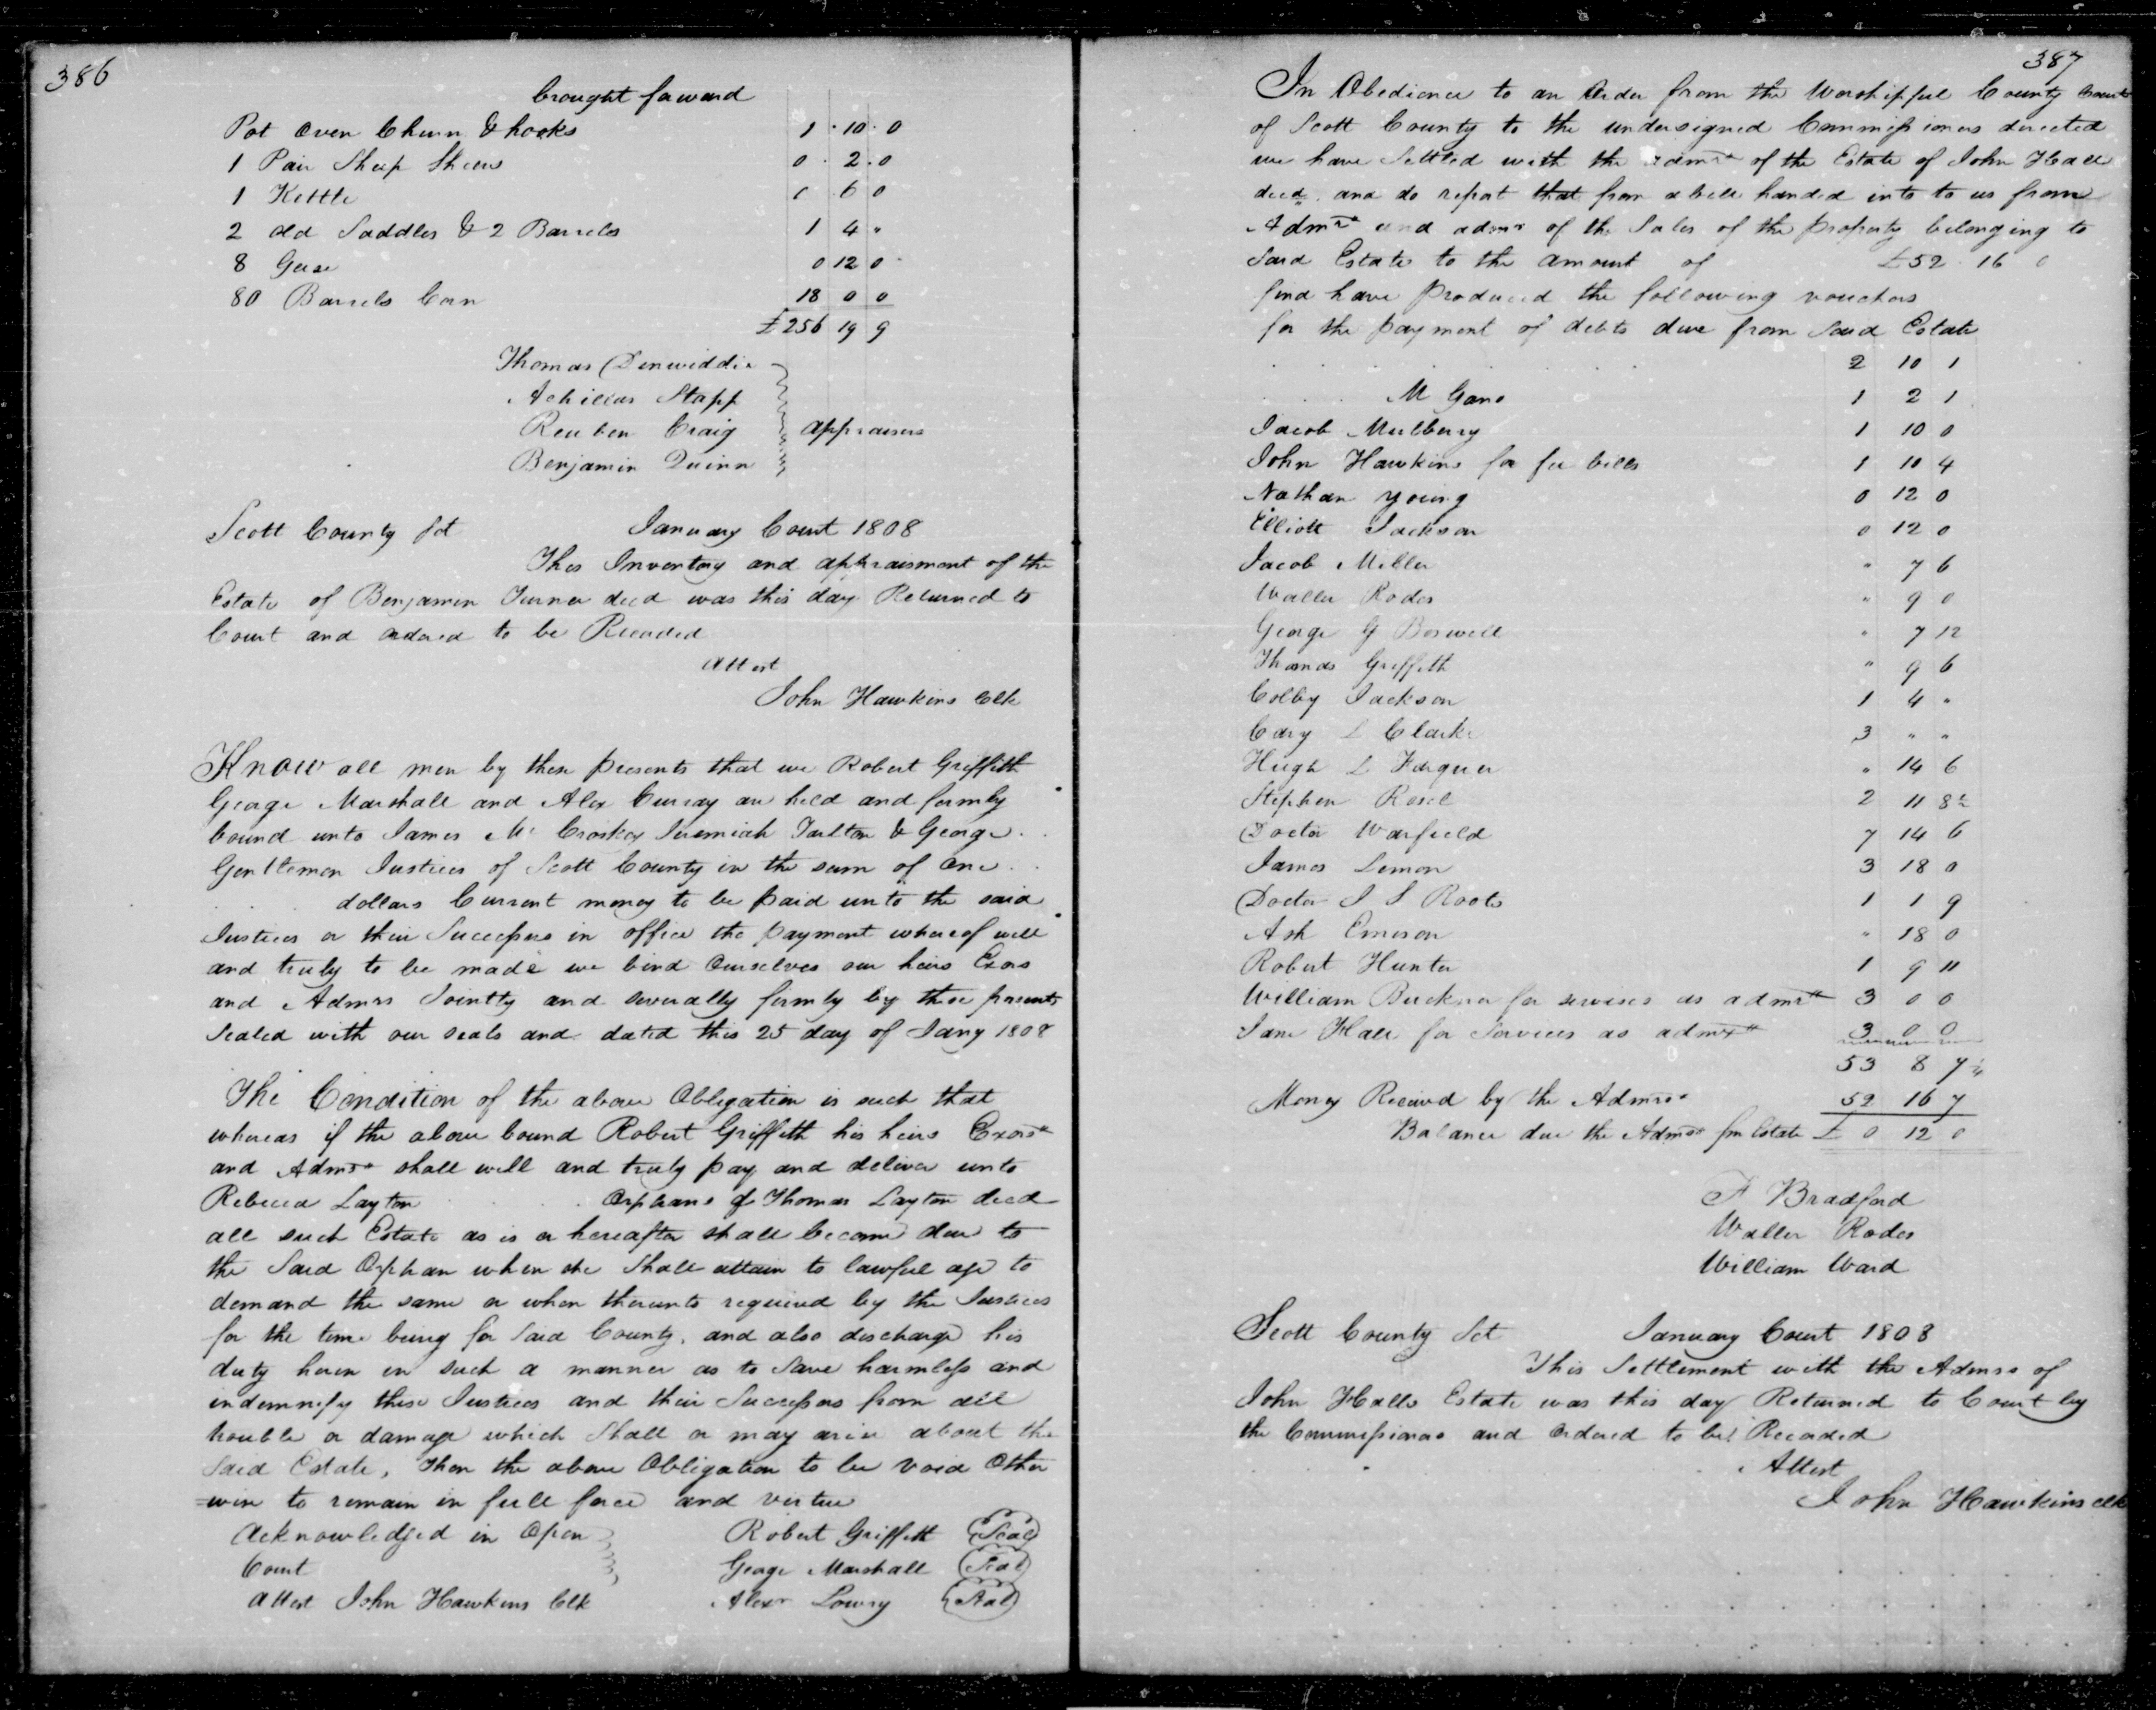 386
brought forward
Pot oven Churn & hooks 1 · 10 · 0
1 Pair Sheep Shears 0 · 2 . 0
1 Kettle 6 0
2 old Saddles & 2 Barrels 1 4 "
8 Geese 0 12 0
80 Barrels Corn 18 0 0
£256 19 9
Thomas Denwiddie
Achilles Stapp
Reuben Craig appraisers
Benjamin Quinn
Scott County Sct January Court 1808
This Inventory and appraisment of the
Estate of Benjamin Turner decd was this day Returned to
Court and ordered to be Recorded
Attest
John Hawkins Clk
Know all men by these presents that we Robert Griffith
George Marshall and Alex are held and firmly
bound unto James Mc Croskey Jeremiah Tarlton & George
Gentlemen Justices of Scott County in the sum of one
dollars Current money to be paid unto the said
Justices or their Successors in office the payment whereof well
and truly to be made we bind Ourselves our heirs Exors
and Admrs Jointly and severally firmly by these presents
Sealed with our seals and dated this 25 day of Jany 1808
The Condition of the above Obligation is such that
whereas if the above bound Robert Griffith his heirs Exors
and Admrs shall well and truly pay and deliver unto
Rebecca Layton Orphans of Thomas Layton decd
all such Estate as is or hereafter shall become due to
the Said Orphan when she Shall attain to lawful age to
demand the same or when thereunto required by the Justices
for the time being for Said County, and also discharge his
duty herein in such a manner as to Save harmless and
indemnify these Justices and their Successors from all
trouble or damage which Shall or may arise about the
Said Estate, Then the above Obligation to be void Other
=wise to remain in full force and virtue
Acknowledged in Open Robert Griffith Seal
Court George Marshall Seal
Attest John Hawkins Clk Alexr Lowry Seal
387
In Obedience to an Order from the Worshipful County Court
of Scott County to the undersigned Commissioners directed
we have Settled with the admrs of the Estate of John Hall
decd. and do report that from a bill handed into to us from
Admrs and admr of the Sales of the property belonging to
Said Estate to the amount of £52 16 0
find have produced the following vouchers
for the payment of debts due from Said Estate
2 10 1
M Gano 1 2 1
Jacob Mulberry 1 10 0
John Hawkins for fee bills 1 10 4
Nathan Young 0 12 0
Elliott Jackson 0 12 0
Jacob Miller " 7 6
Waller Rodes " 9 0
George G Boswell " 7 12
Thomas Griffith " 9 6
Colby Jackson 1 4 "
Cary L Clarke 3 " "
Hugh L " 14 6
Stephen 2 11 8
Doctor Warfield 7 14 6
James Lemon 3 18 0
Doctor J S Roots 1 1 9
Ash Emerson " 18 0
Robert Hunter 1 9 11
William Buckner for servises as admr 3 0 0
Jane Hall for Services as admx 3 0 0
53 8 7
Money Received by the Admrs 52 16 7
Balance due the Admrs fm Estate £ 0 12 0
F Bradford
Waller Rodes
William Ward
Scott County Sct January Court 1808
This Settlement with the Admrs of
John Halls Estate was this day Returned to Court by
the Commissioners and Ordered to be Recorded
Attest
John Hawkins clk